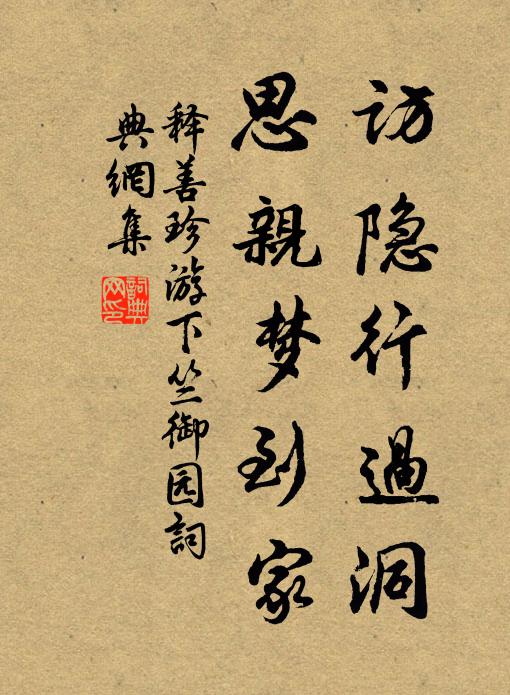 访隐行過洞
思親梦到家
释善珍游下竺御园詞
典網集
詞典
网印